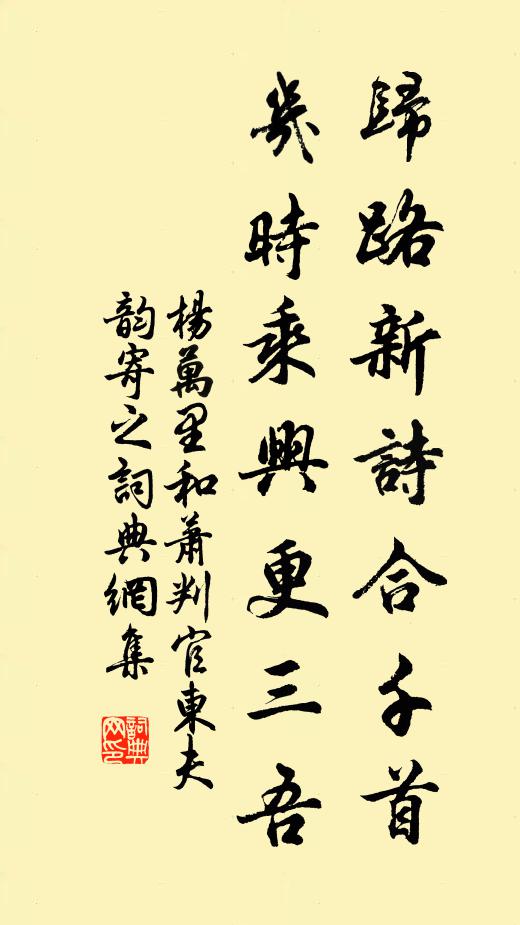 歸路新詩合千首
幾時乘興更三吾
楊萬里和蕭判官東夫
韵寄之詞典網集
詞典
网印